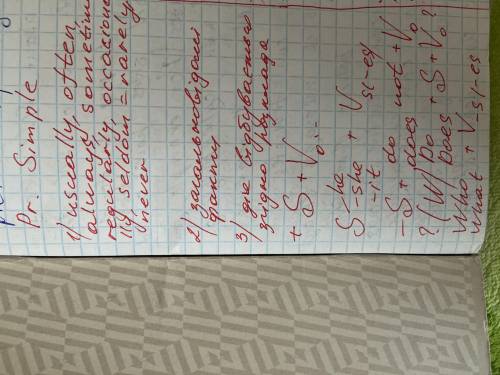 Pr. Simple
1) usually, often
always, sometim
regularly, occasiona
lly seldom = rarely
never
2) загальновідомі
факти
3) дія відбувається
згідно розклада
+ S + V₀...
S - he
- she + V s/-es
- it
- S + do
does not + V₀
? (W) Do
Does + S + V₀ ?
Who + V -s/-es
What